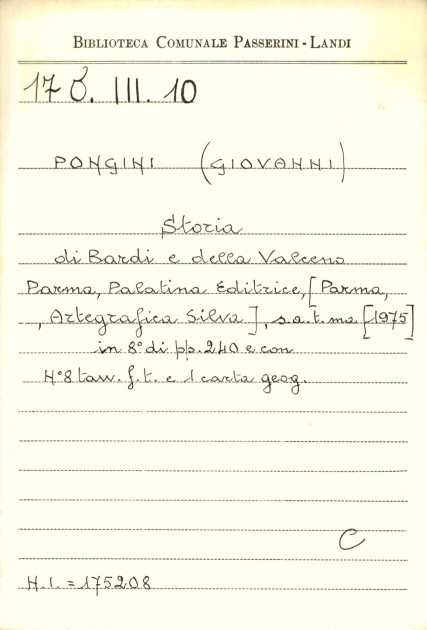 BIBLIOTECA COMUNALE PASSERINI - LANDI
17 O. III. 10
PONGINI (GIOVANNI)
Storia
di Bardi e della Valceno
Parma, Palatina Editrice, [Parma,
, Artegrafica Silva], s.a.t. ma [1975]
in 8° di pp. 240 e con
N° 8 tavv. f.t. e 1 carta geog.
C
N.I. = 175208